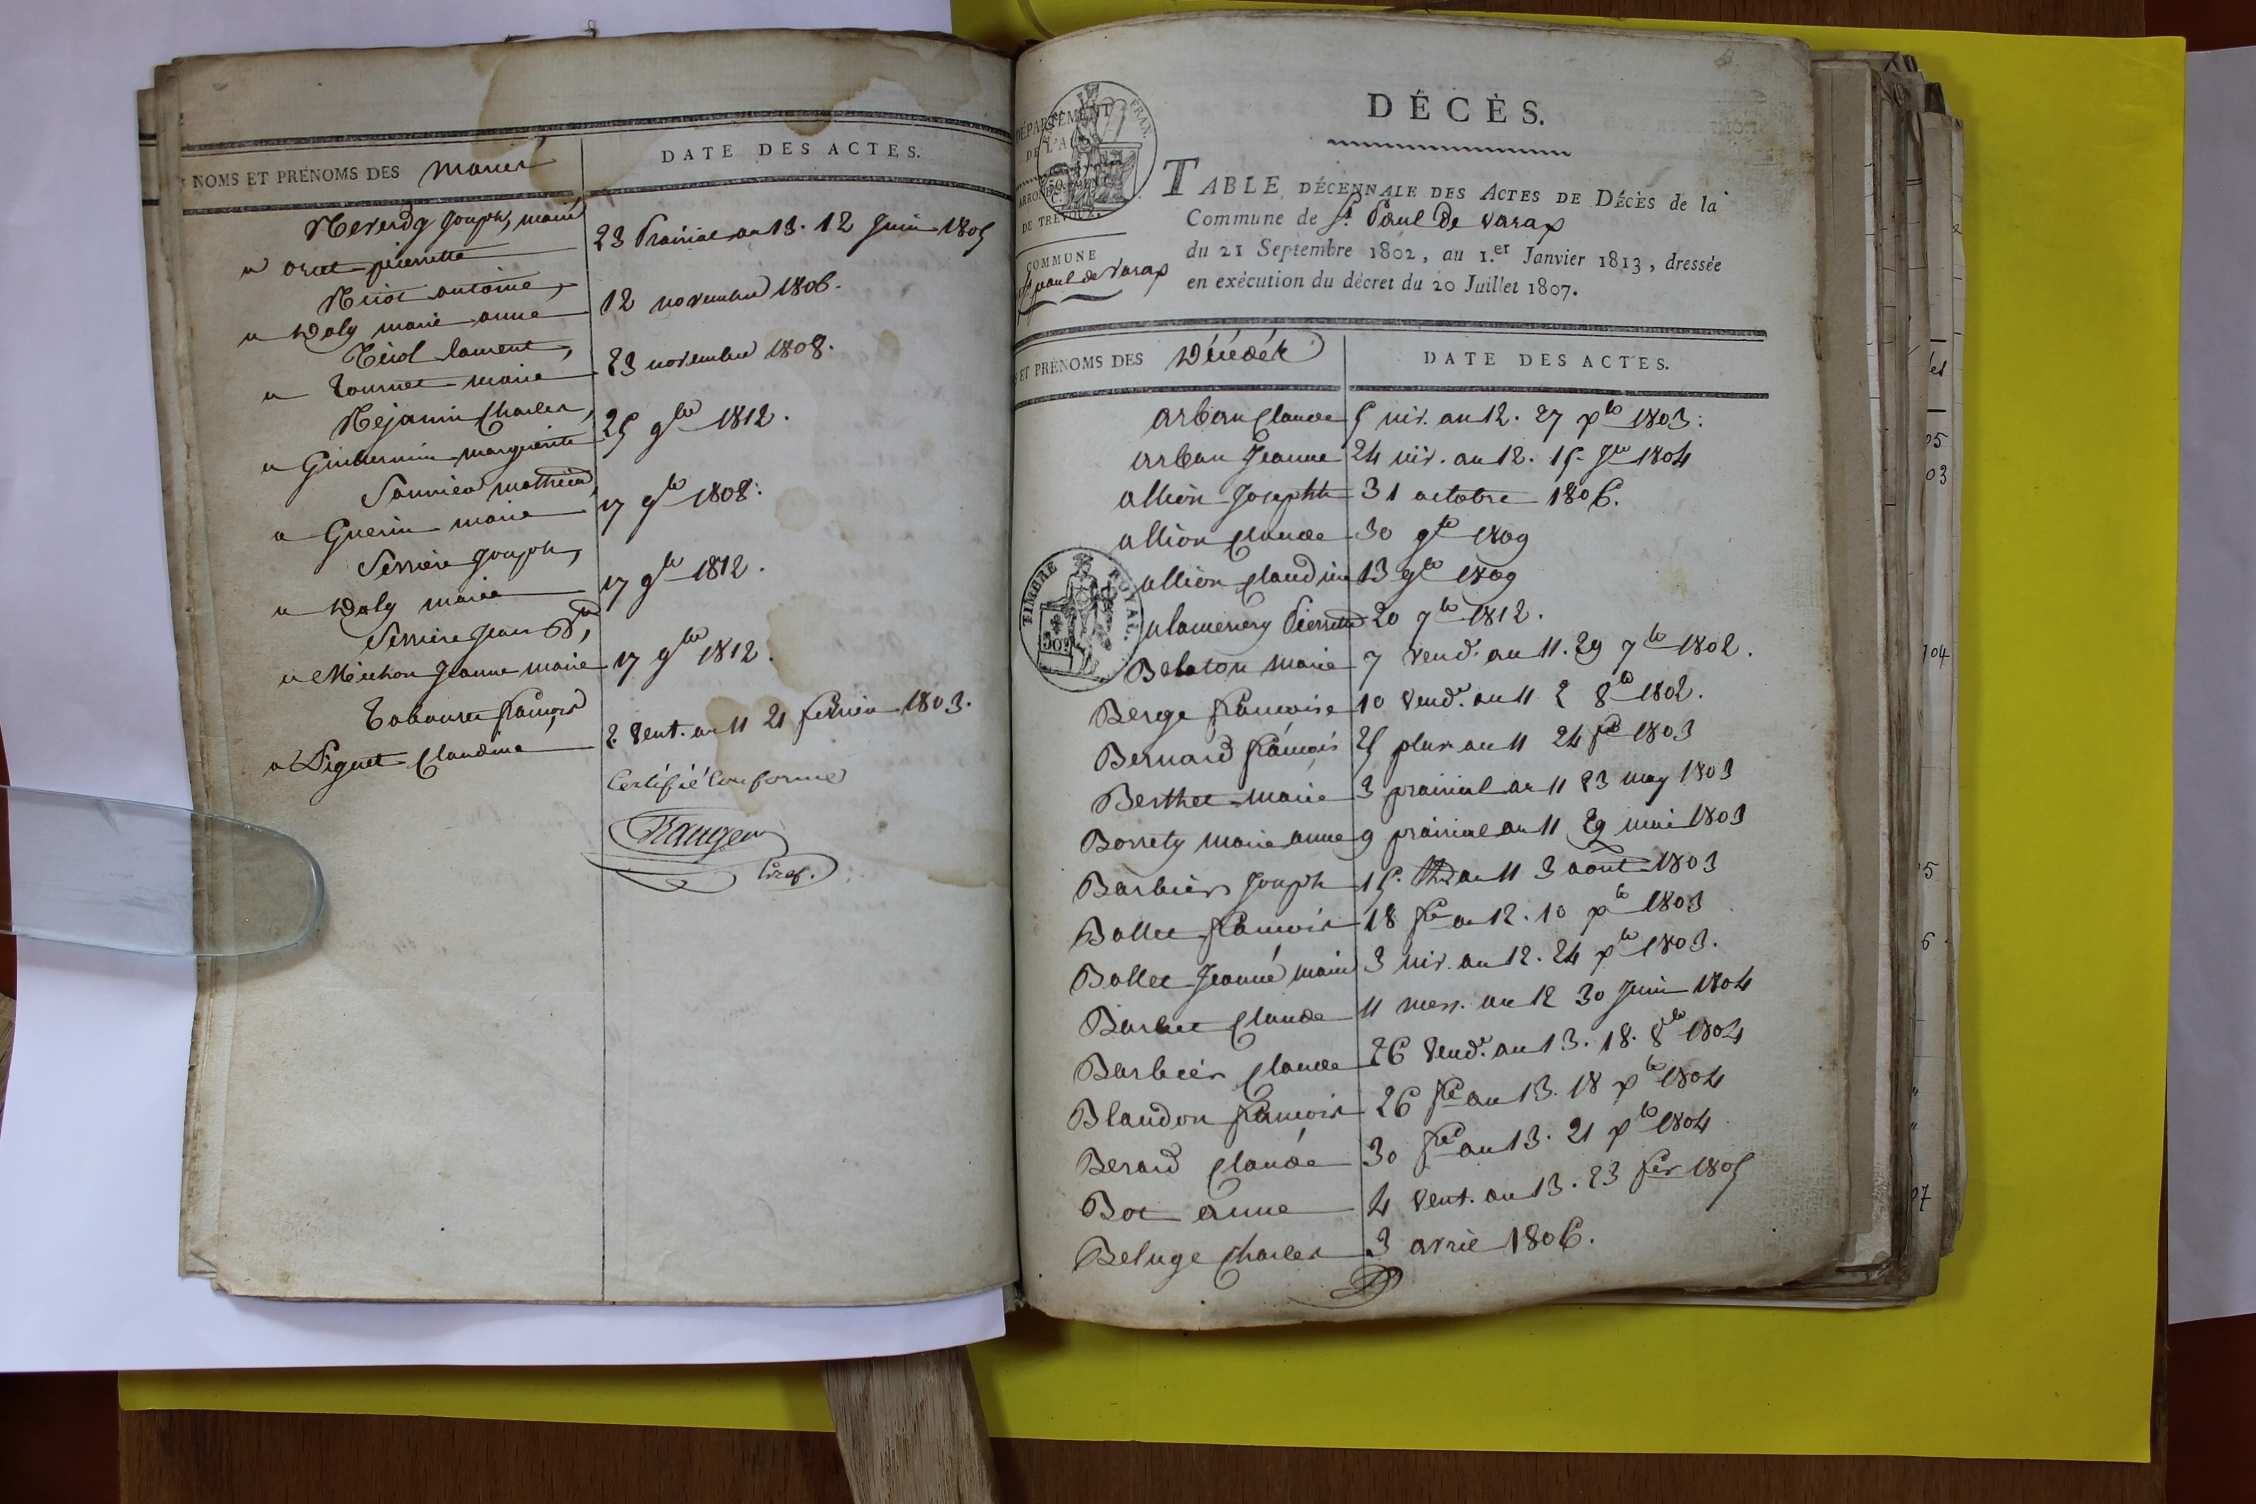 NOMS ET PRÉNOMS DES mariés
DATE DES ACTES.
Reverdy Joseph, marié
a oret pierrette
23 Prairial an 13. 12 Juin 1805
antoine,
a Daly marie anne
12 novembre 1806.
laurent,
a Tournet marie
23 novembre 1808.
Rejanin Charles,
a marguerite
25 9bre 1812.
Saunier mathieu,
a Guerin marie
17 9bre 1808.
Serriere Joseph,
a Daly marie
17 9bre 1812.
Serriere Jean Bte,
a Michon Jeanne marie
17 9bre 1812.
françois
a Piguet Claudine
2 Vent. an 11 21 fevrier 1803.
Certifié Conforme
Gref.
DÉPARTEMENT
DE L'A
DE TREVOUX.
COMMUNE
St paul de Varax
DÉCÈS.
TABLE DÉCENNALE DES ACTES DE DÉCÈS de la
Commune de St. Paul de Varax
du 21 Septembre 1802, au 1.er Janvier 1813, dressée
en exécution du décret du 20 Juillet 1807.
ET PRÉNOMS DES Décédés
DATE DES ACTES.
TIMBRE ROYAL.
arban Claude 5 niv. an 12. 27 xbre 1803.
arban Jeanne 24 niv. an 12. 15 Jer 1804
allion Joseph 31 octobre 1806.
allion Claude 30 9bre 1809
allion Claudine 13 9bre 1809
Pierrette 20 7bre 1812.
Belaton marie 7 vend. an 11. 29 7bre 1802.
Berge françoise 10 vend. an 11 2 8bre 1802.
Bernard françois 25 pluv. an 11 24 fer 1803
Berthet marie 3 prairial an 11 23 may 1803
Borrety marie anne 9 prairial an 11 29 mai 1803
Barbier Joseph 15 an 11 3 aout 1803
Ballet françois 18 fre an 12. 10 xbre 1803
Ballet Jeanne marie 3 niv. an 12. 24 xbre 1803.
Barbet Claude 11 mess. an 12 30 Juin 1804
Barbier Claude 26 vend. an 13. 18. 8bre 1804
Blandon françois 26 fre an 13. 18 xbre 1804
Berard Claude 30 fre an 13. 21 xbre 1804
Bot anne 4 vent. an 13. 23 fer 1805
Beluge Charles 3 avril 1806.